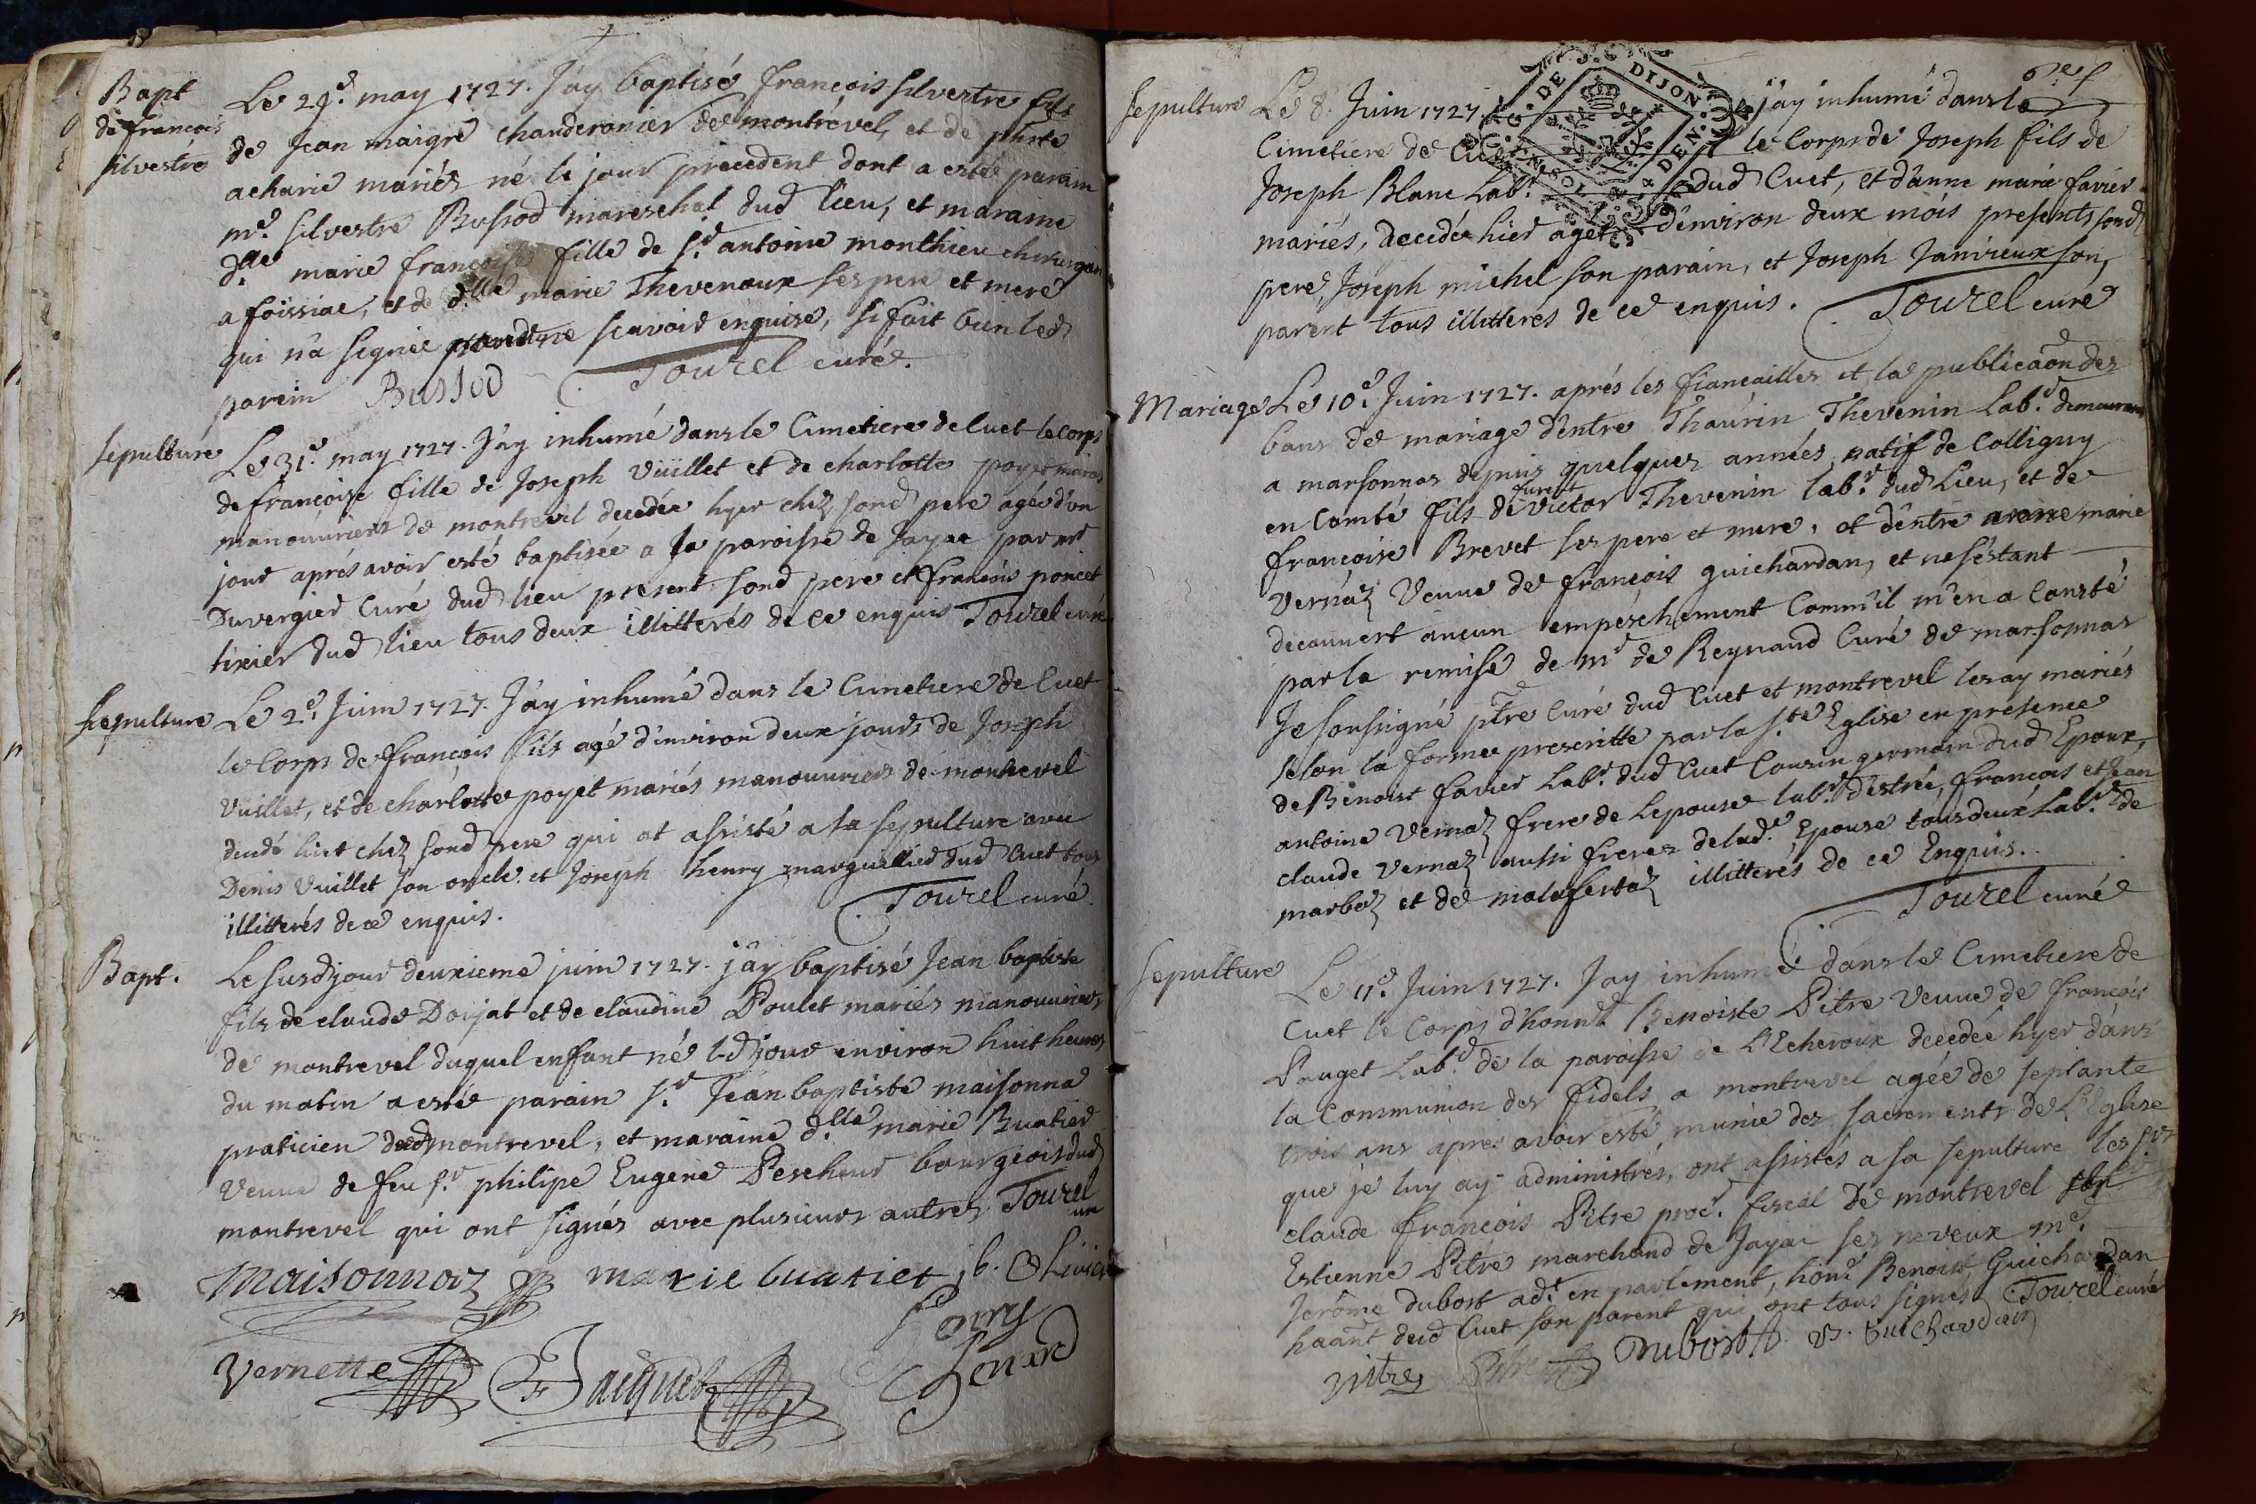 Bapt
de francois
silvestre
Le 29.e may 1727. J'ay baptisé francois silvestre fils
de Jean maigre chauderonier de montrevel, et de
acharie mariés né le jour precedent dont a esté parain
m.e silvestre Bussod mareschal dud lieu, et maraine
d.lle marie francoise fille de s.r antoine monthieu chirurgien
a foissiac, et de d.lle marie Thevenoux ses pere et mere
qui n'a signée ne scavoir enquise, si fait bien led
parein Bussod Tourel curé.
sepulture
Le 31.e may 1727. J'ay inhumé dans le Cimetiere de Cuet le corps
de francoise fille de Joseph Vüillet et de charlotte poyet mariés
manouvriers de montrevel decedée hyer chez sond pere agée d'un
jour aprés avoir esté baptisée a la paroisse de Jayac par mr
Duvergier Curé dud lieu present sond pere et francois poncet
tixier dud lieu tous deux illitterés de ce enquis Tourel curé
sepulture
Le 2.e Juin 1727. J'ay inhumé dans le Cimetiere de Cuet
le Corps de francois fils agé d'environ deux jours de Joseph
Vuillet, et de charlotte poyet mariés manouvriers de montrevel
decedé hier chez sond pere qui at assisté a sa sepulture avec
Denis Vuillet son oncle et Joseph henry marguillier dud Cuet tous
illitterés de ce enquis. Tourel curé
Bapt.
Le susd jour deuxieme juin 1727. j'ay baptisé Jean baptiste
fils de claude Doujat et de claudine Poulet mariés manouvriers
de montrevel duquel enfant né led jour environ huit heures
du matin a esté parain s.r Jean baptiste maisonna
praticien dud montrevel, et maraine d.lle marie Buatier
Veuve de feu s.r philipe Eugene Pescheur bourgeois dud
montrevel qui ont signés avec plusieurs autres Tourel
curé
Maisonnaz marie buatier j.b.
Vernette Jacquet
sepulture
Le 8. Juin 1727. j'ay inhumé dans le
Cimetiere de Cuet le Corps de Joseph fils de
Joseph Blanc Lab.r dud Cuet, et d'anne marie favier
mariés, decedé hier agé d'environ deux mois presents sond
pere, Joseph michel son parain, et Joseph Janvieux son
parent tous illitteres de ce enquis. Tourel curé
G. DE DIJON
Mariage
Le 10.e Juin 1727. aprés les fiancailles et la publicaon des
bans de mariage d'entre Thaurin Thevenin Lab.r demeurant
a marsonnas depuis quelques années, natif de Colligny
en Comté fils de Victor Thevenin lab.r dud Lieu, et de
francoise Brevet ses pere et mere, et d'entre anne marie
Vernaz Veuve de francois guichardan, et ne s'éstant
decouvert aucun empeschement Comm'il m'en a Consté
par la remise de m.r de Reynaud Curé de marsonnas
Je soussigné ptre Curé dud Cuet et montrevel les ay mariés
selon la forme prescritte par la s.te Eglise en presence
de Benoist favier Lab.r dud Cuet Cousin germain dud Epoux,
antoine Vernaz frere de Lepouse lab.r d'estrée, francois et Jean
claude Vernaz aussi freres de lad.e Epouse tous deux Lab.rs de
marboz et de malafertaz illitterés de ce Enquis.
Tourel curé
sepulture
Le 11.e Juin 1727. Jay inhumé dans le Cimetiere de
Cuet le Corps d'honn.te Benoiste Pitre Veuve de francois
Pouget Lab.r de la paroisse de L'Echeroux decedée hyer dans
la Communion des fidels a montrevel agée de septante
trois ans apres avoir esté munie des sacrements de L'Eglise
que je luy ay administrés, ont assistés a sa sepulture les srs
claude francois Pitre proc.r fiscal de montrevel
Estienne Pitre marchand de Jayac ses neveux m.e
Jerôme dubost ad.t en parlement, hon.e Benoist Guichardan
haant dud Cuet son parent qui ont tous signés Tourel curé
Pitre Pitre Dubost B. Guichardan